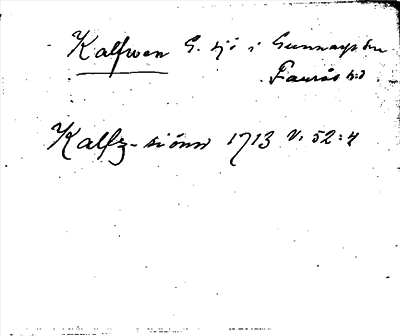 Kalfven G. sjö i Gunnarps sn
Faurås hd
Kalfz-siönn 1713 V. 52:4